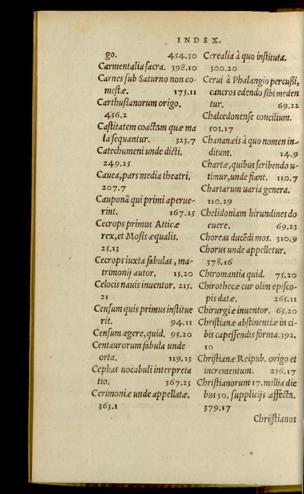 INDEX.
go. 454.30
Carmentalia sacra. 398.10
Carnes sub Saturno non co-
mestæ. 175.11
Carthusianorum origo.
456.2
Castitatem coactam quæ ma
la sequantur. 323.7
Catechumeni unde dicti.
249.25
Cauea, pars media theatri.
207.7
Cauponā qui primi aperue-
rint. 167.25
Cecrops primus Atticæ
rex, et Mosis æqualis.
25.13
Cecrops iuxta fabulas, ma-
trimonij autor. 15.20
Celocis nauis inuentor. 215.
21
Censum quis primus institue
rit. 94.11
Censum agere, quid. 95.20
Centaurorum fabula unde
orta. 119.13
Cephas uocabuli interpreta
tio. 367.23
Cerimoniæ unde appellatæ.
363.1
Cerealia à quo instituta.
300.20
Cerui à Phalangio percussi,
cancros edendo sibi meden
tur. 69.22
Chalcedonense concilium.
503.17
Chananæis à quo nomen in-
ditum. 14.9
Chartæ, quibus scribendo u-
timur, unde fiant. 110.7
Chartarum uaria genera.
110.29
Chelidoniam hirundines do
cuere. 69.23
Choreas ducēdi mos. 310.9
Chorus unde appelletur.
378.16
Chiromantia quid. 75.20
Chirothecæ cur olim episco-
pis datæ. 265.11
Chirurgiæ inuentor. 65.20
Christianæ abstinentiæ in ci-
bis capessendis forma. 392.
10
Christianæ Reipub. origo et
incrementum. 236.17
Christianorum 17. millia die
bus 30. supplicijs affecta.
379.17
Christianos